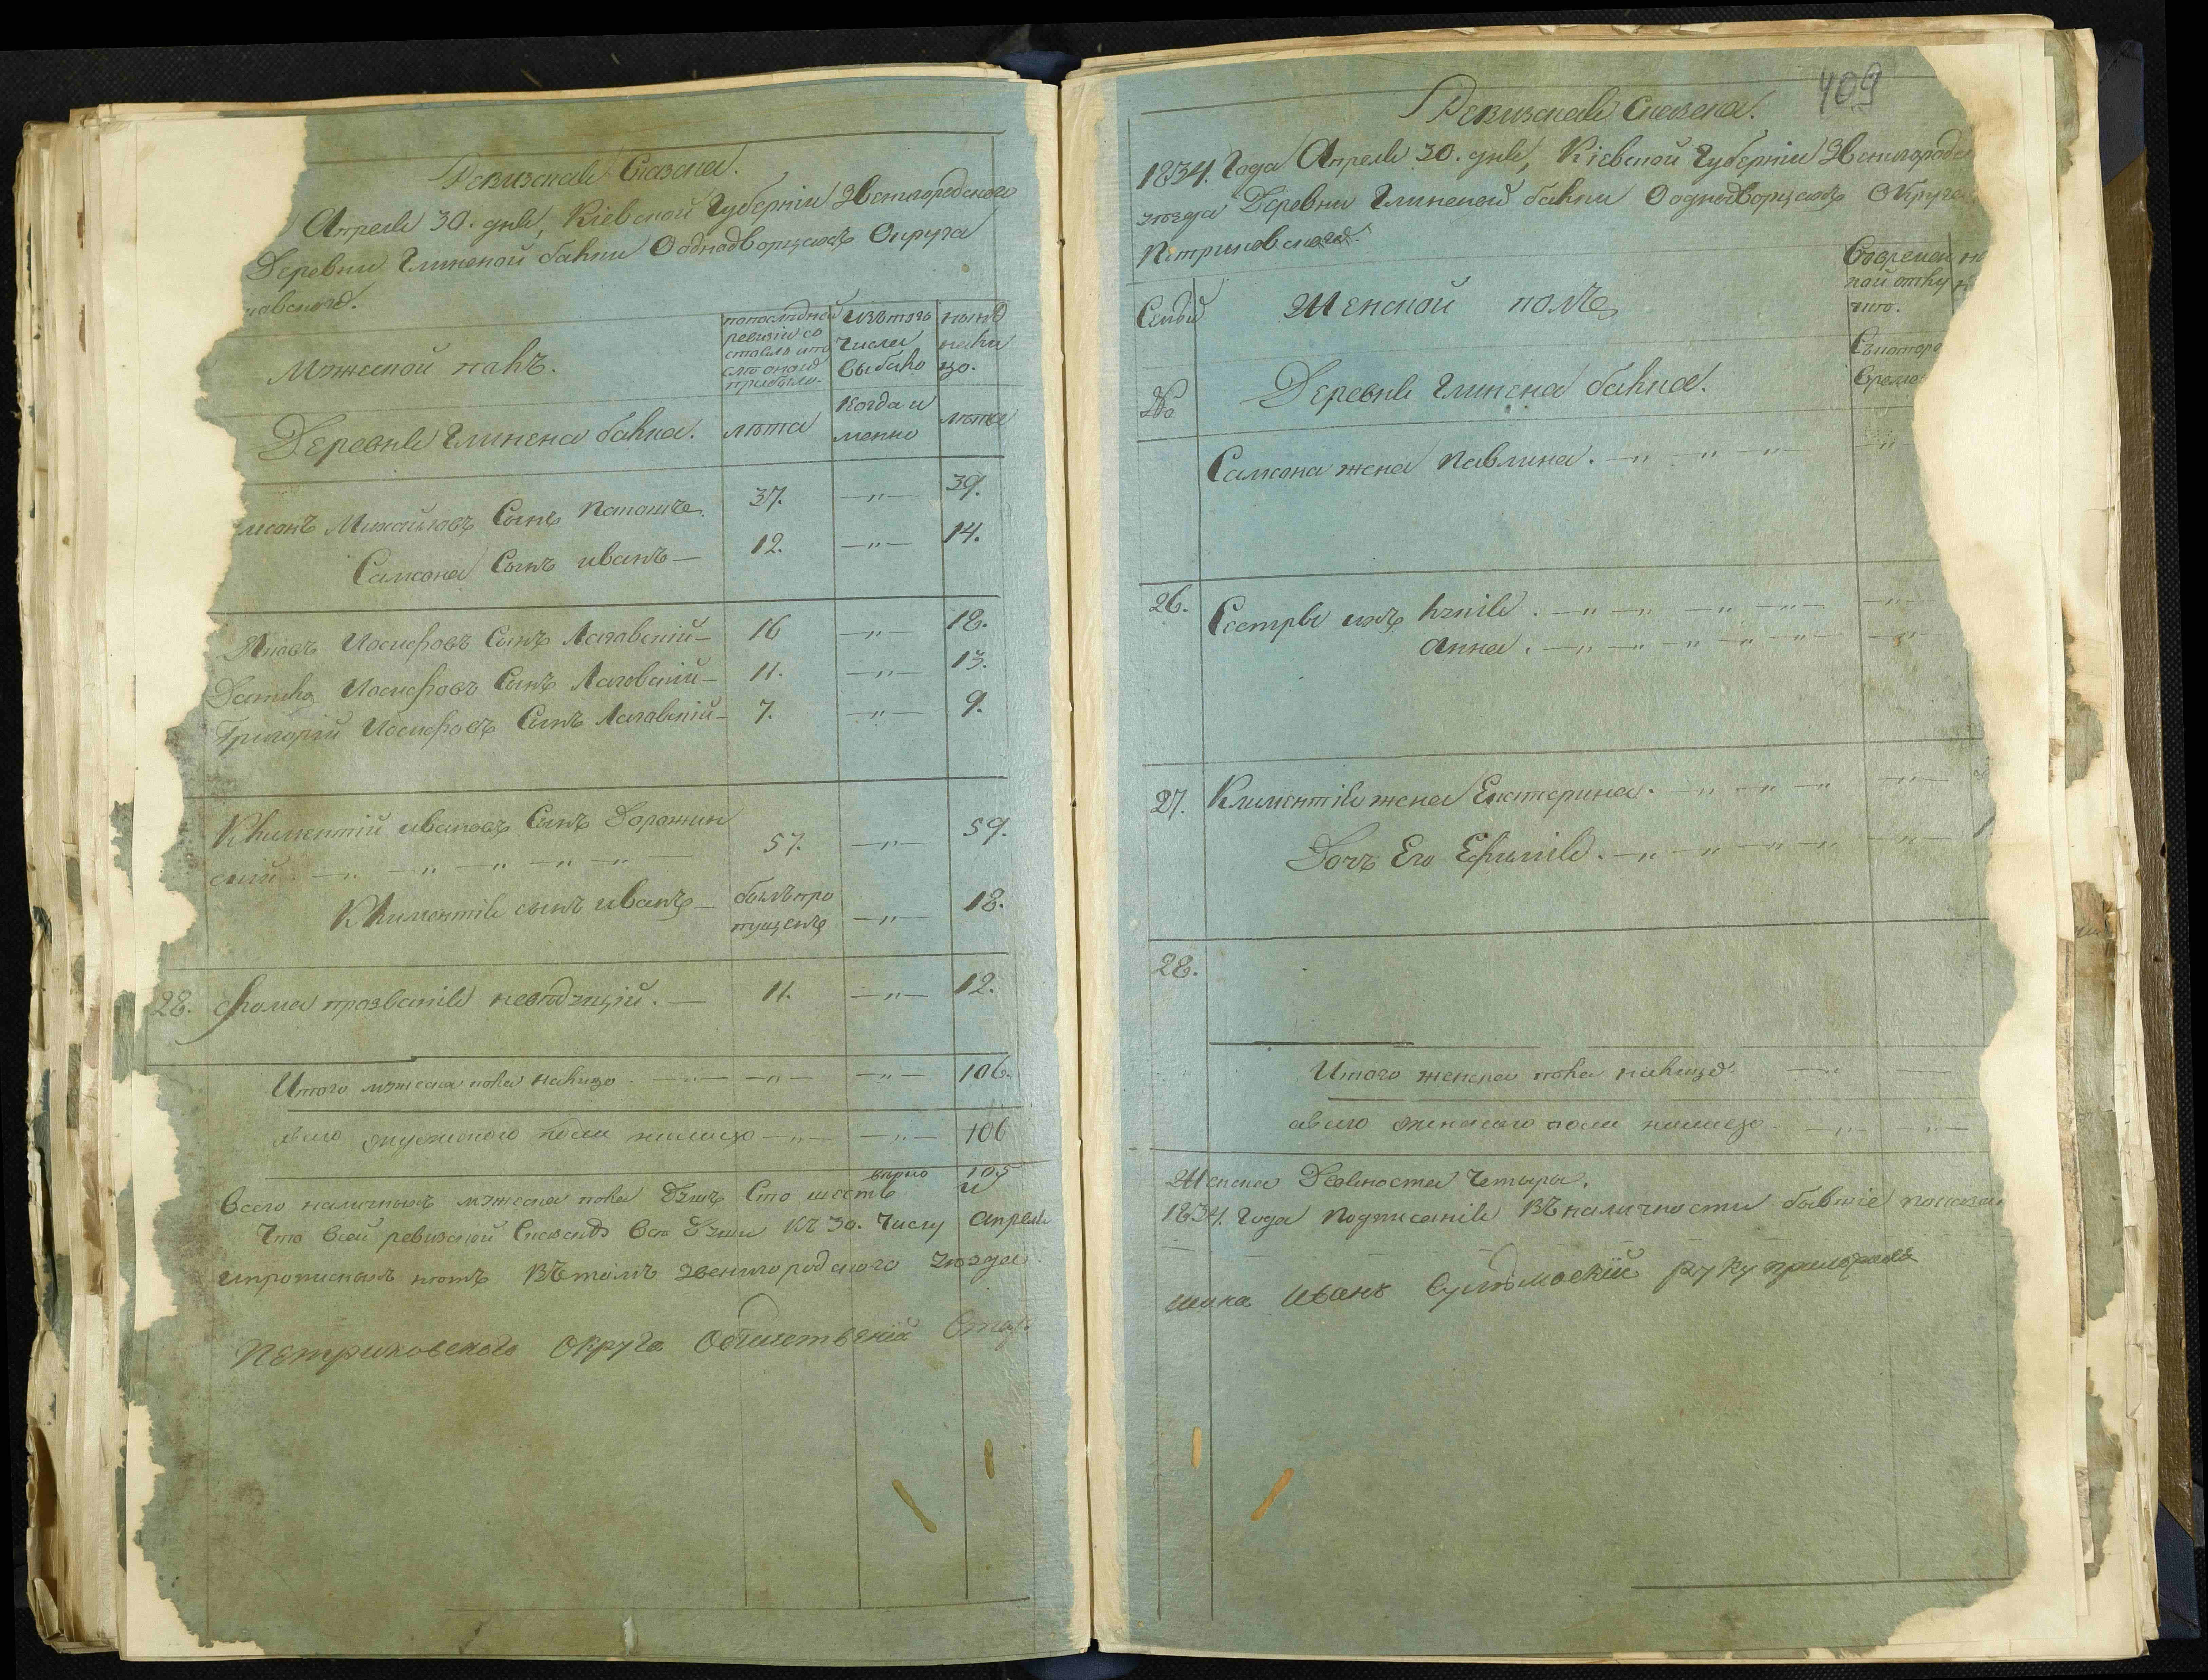 Ревизская Сказка.
Апреля 30. дня, Кіевской Губерніи Звенигородского
Деревни Глиненой балки О однодворцахъ Округа
мужеской полъ.
по последней
ревизіи со
стояло и по
сле оной
прибыло.
изъ того
числа
выбыло
ныне
нали
цо.
Деревня Глинена балка.
лета
когда и
менно
лета
Михайловъ Сынъ 37. —„— 39.
Самсона Сынъ иванъ — 12. —„— 14.
Яковъ Иосифовъ Сынъ Лаговскій — 16 —„— 18.
Иосифовъ Сынъ Лаговскій — 11. —„— 13.
Григорій Иосифовъ Сынъ Лаговскій — 7. —„— 9.
Климентій ивановъ Сынъ Дорожин
ский — „ — „ — „ — „ — 57. —„— 59.
Климентія сынъ иванъ — былъ про
пущенъ —„— 18.
28. Фома прозванія 11. —„— 12.
Итого мужеска пола налицо. —„— —„— —„— 106.
всего мужеского пола налицо —„— —„— 106
верно 105
Всего наличныхъ мужеска пола душъ Сто шесть и
Что Всей ревизской Сказкъ Все души Къ 30. Числу Апреля
и прописныхъ нетъ Въ томъ Звенигородского уезда
Петриковского Округа Обществений Стар
409
Ревизская Сказка.
1834. Года Апреля 30. дня, Кіевской Губерніи Звенигородск
уезда Деревни Глиненой балки О однодворцахъ Округа
Петриковского.
Семьи
Женской полъ
Во времен
ной отлу
чке.
№
Деревня Глинена балка.
Съ которо
Времен
Самсона жена Павлина. — „ — „ — „ —
26. Сестры ихъ Юлія. — „ — „ — „ — „ —
Анна. — „ — „ — „ — „ — „ —
27. Климентія жена Екатерина. — „ — „ — „
Дочь Его Ефимія. — „ — „ — „ — „
28.
Итого женска пола налицо.
всего женского пола налицо. —„— —„—
Женска Девяноста Четыри,
1834. Года Подписанія Въ наличности бывшіе показан
шина Иванъ руку приложилъ